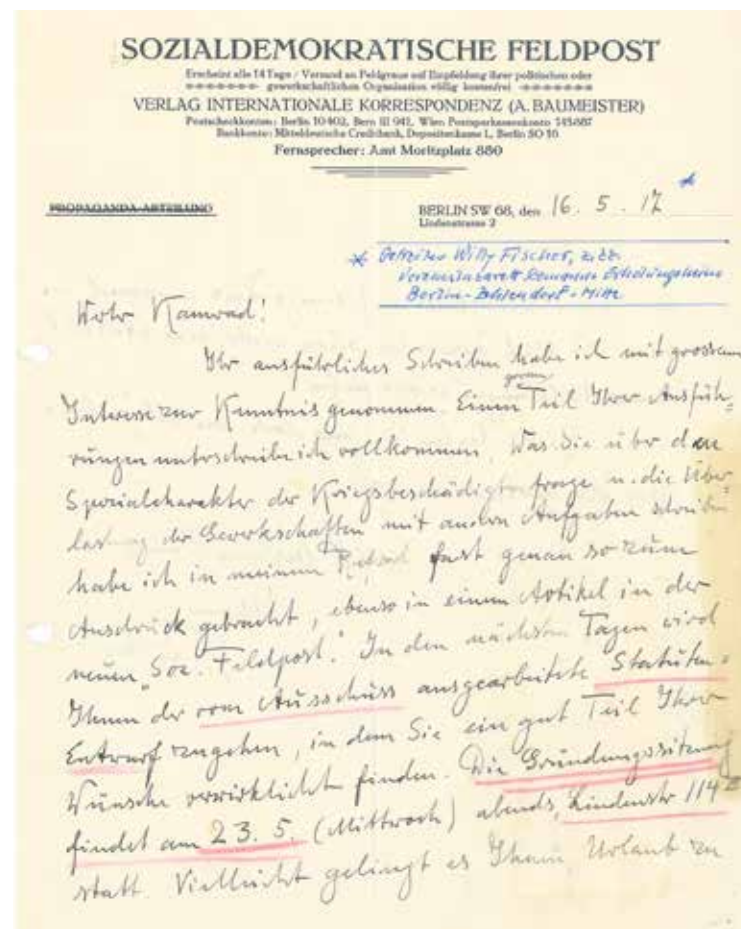 SOZIALDEMOKRATISCHE FELDPOST
Erscheint alle 14 Tage / Versand an Feldgraue auf Empfehlung ihrer politischen oder
gewerkschaftlichen Organisation völlig kostenfrei
VERLAG INTERNATIONALE KORRESPONDENZ (A. BAUMEISTER)
Postscheckkonten: Berlin 10402, Bern III 941, Wien Postsparkassenkonto 145887
Bankkonto: Mitteldeutsche Creditbank, Depositenkasse L, Berlin SO 16
Fernsprecher: Amt Moritzplatz 880
PROPAGANDA-ABTEILUNG
BERLIN SW 68, den 16. 5. 17 *
Lindenstrasse 3
* Gefreiter Willy Fischer, z. Zt.
Vereinslazarett Erholungsheim
Berlin - Mitte
Werter Kamerad!
Ihr ausführliches Schreiben habe ich mit grossem
Interesse zur Kenntnis genommen. Einen grossen Teil Ihrer Ausfüh-
rungen unterschreibe ich vollkommen. Was Sie über den
Spezialcharakter der Kriegsbeschädigtenfrage u. die Über-
lastung der Gewerkschaften mit andern Aufgaben schreiben
habe ich in meinem Referat fast genau so zum
Ausdruck gebracht, ebenso in einem Artikel in der
neuen "Soz. Feldpost." In den nächsten Tagen wird
Ihnen der vom Ausschuss ausgearbeitete Statuten-
Entwurf zugehen, in dem Sie ein gut Teil Ihrer
Wünsche verwirklicht finden. Die Gründungssitzung
findet am 23. 5. (Mittwoch) abends, Lindenstr 114
statt. Vielleicht gelingt es Ihnen Urlaub zu